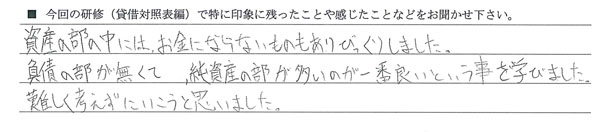 ■ 今回の研修（貸借対照表編）で特に印象に残ったことや感じたことなどをお聞かせ下さい。
資産の部の中には、お金にならないものもありびっくりしました。
負債の部が無くて、純資産の部が多いのが一番良いという事を学びました。
難しく考えずにいこうと思いました。